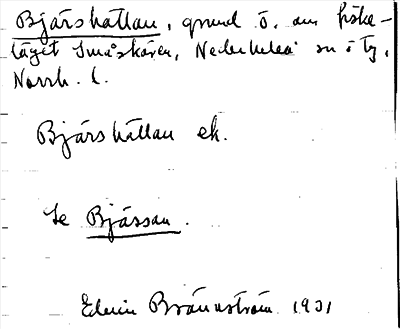 Bjårshällan, grund ö. om fiske-
läget Småskären, Nederluleå sn o tg,
Norrb. l.
Bjårshällan ek.
Se Bjåssan.
Edvin Brännström 1931